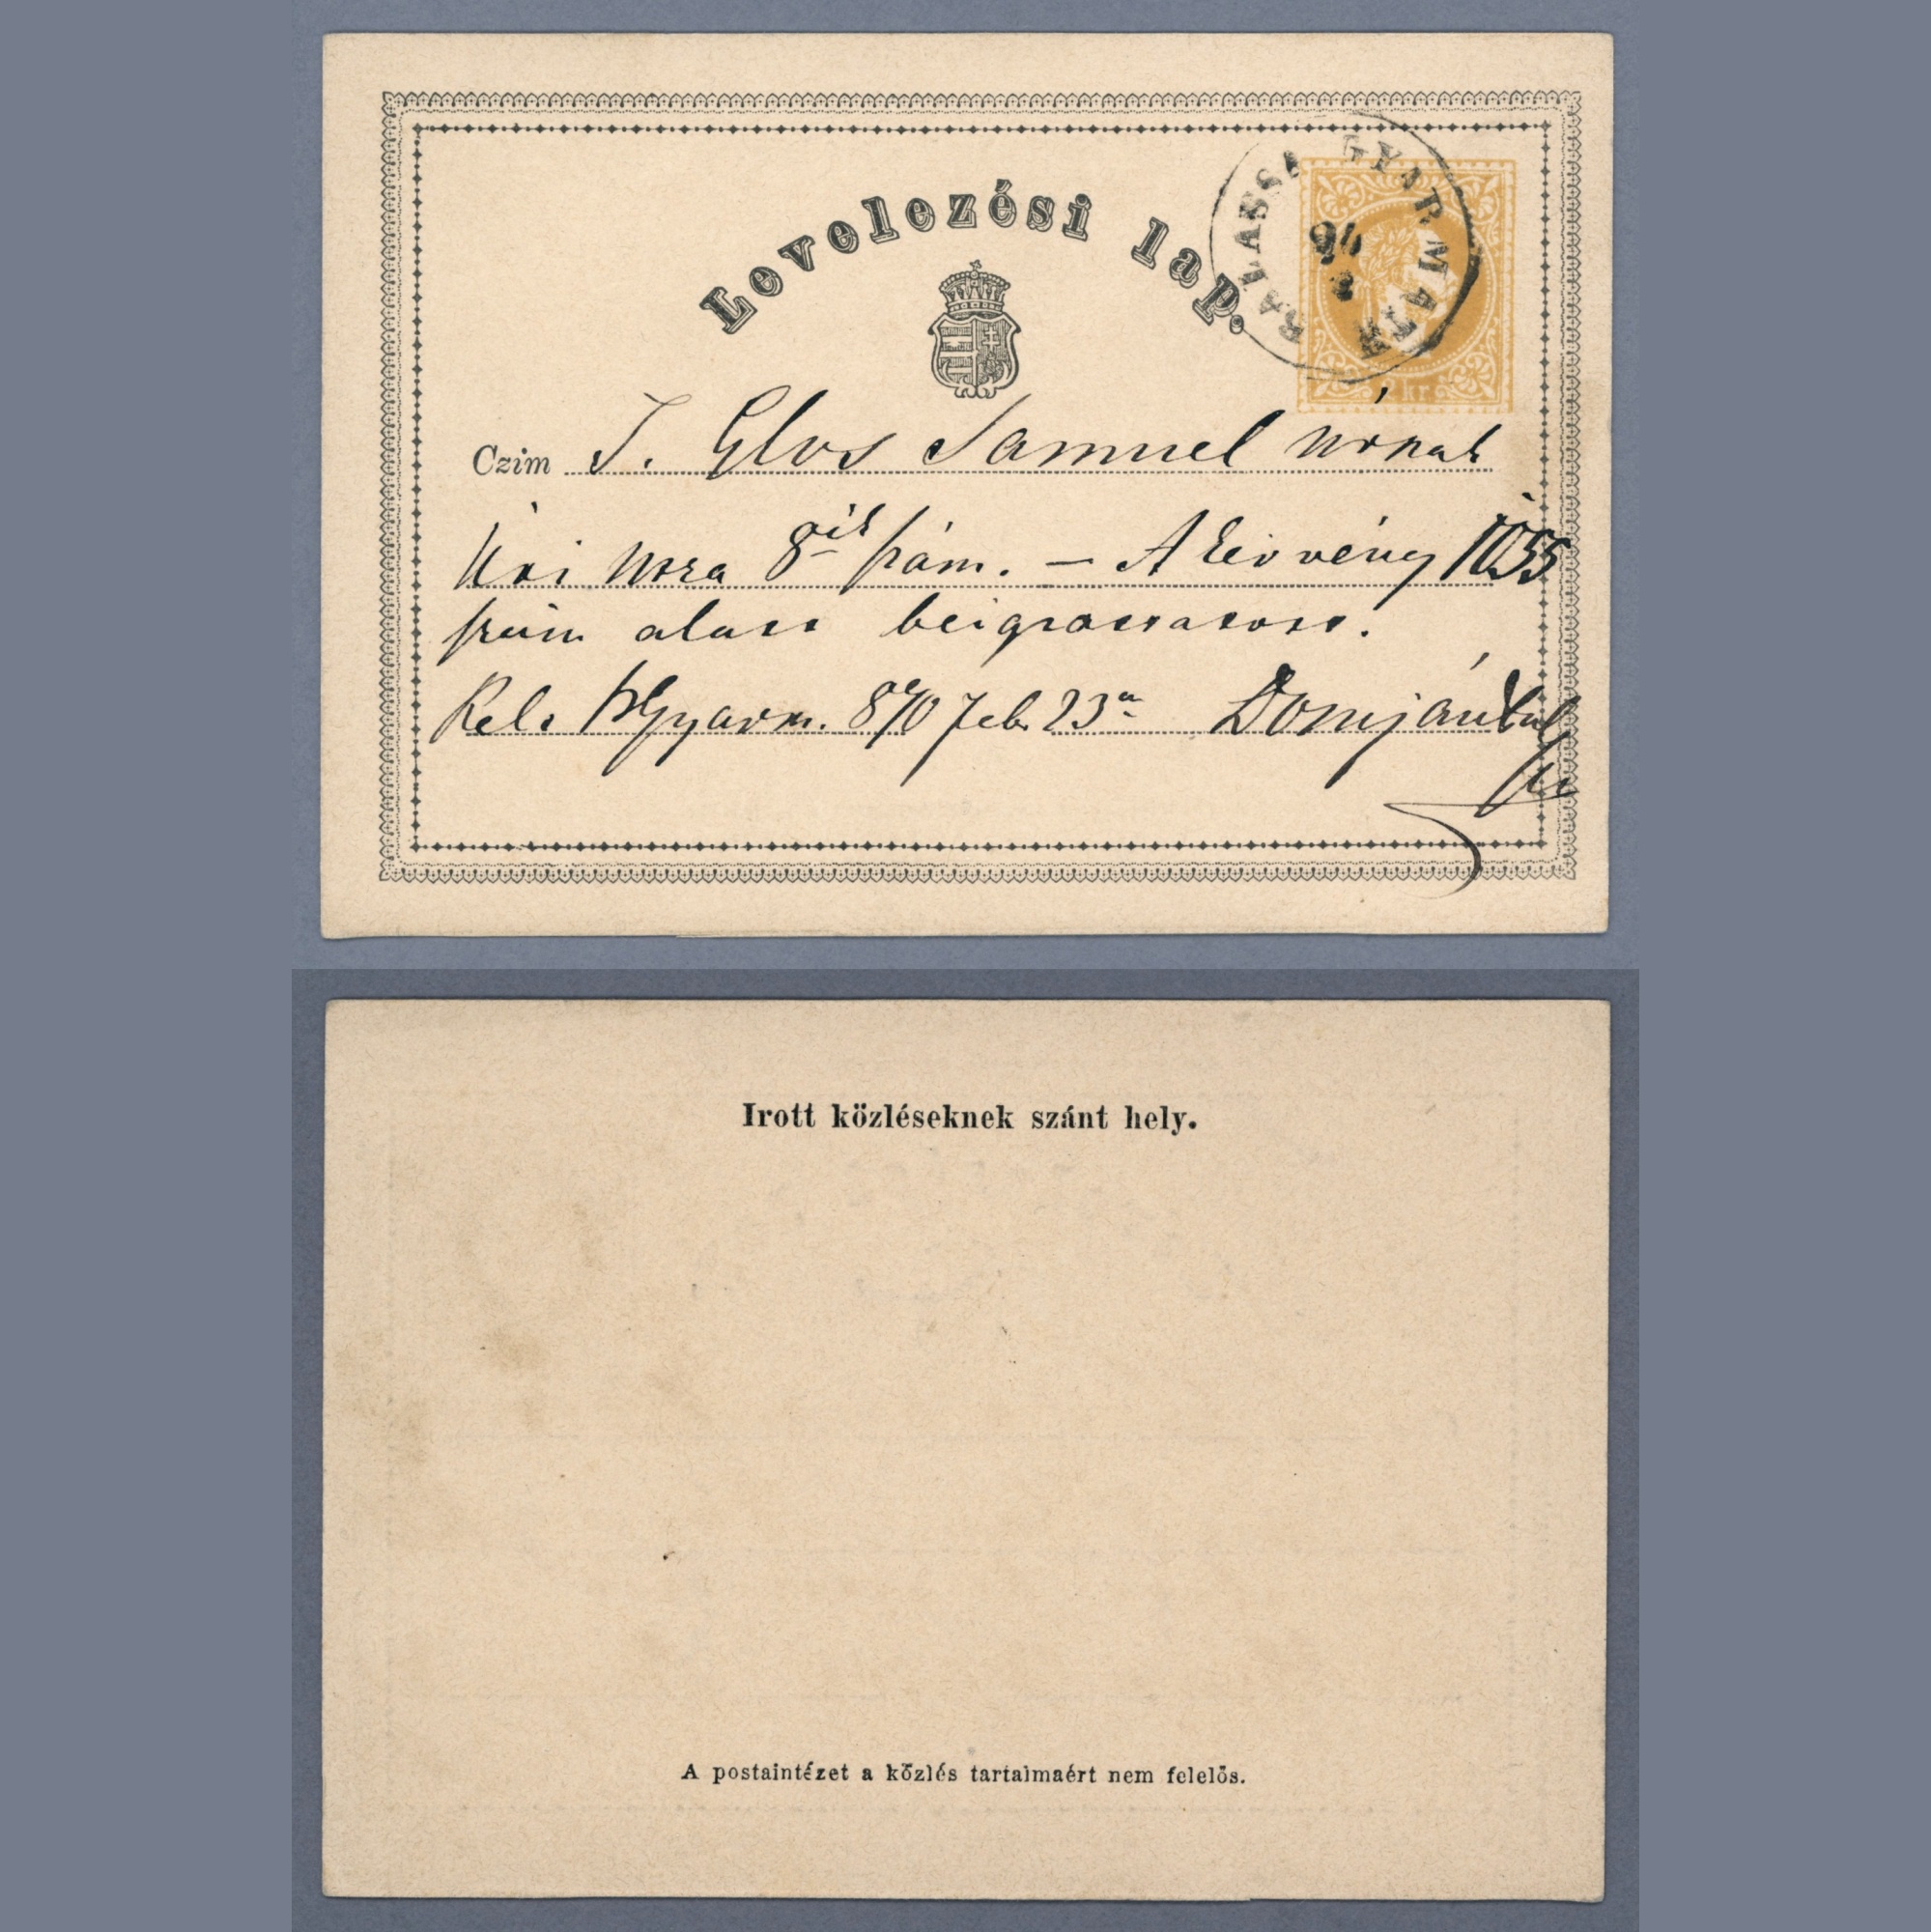 Levelezési lap.
BALASSA GYARMATH
2 kr.
Czim T. Glos Samuel urnak
Úri utza 8ik szám. — A térvény 1055
szám alatt beigtattatott.
Kelt BGyarm. 870 Feb. 23án Domján
Irott közléseknek szánt hely.
A postaintézet a közlés tartalmaért nem felelős.